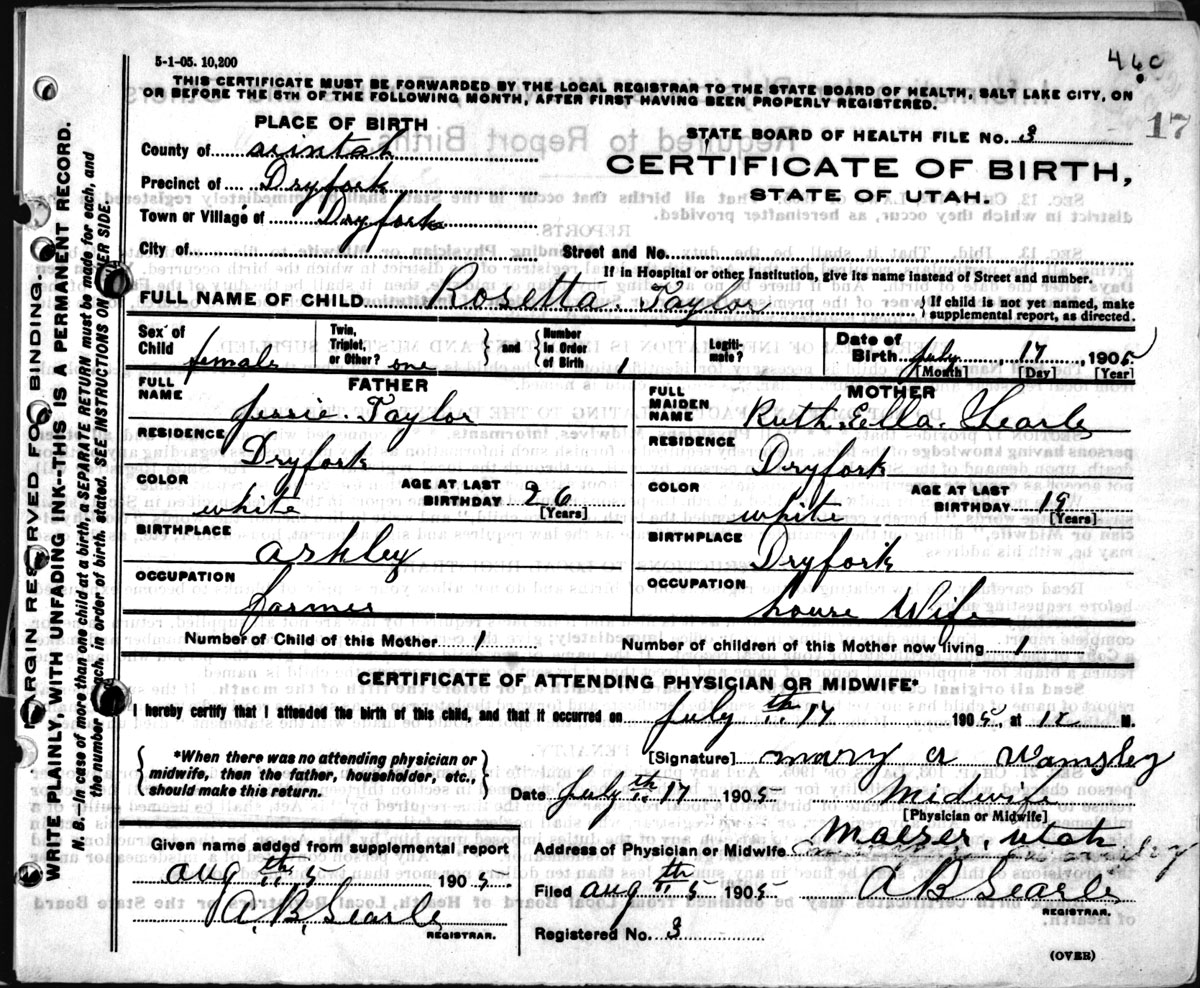 5-1-05. 10,200
46c
THIS CERTIFICATE MUST BE FORWARDED BY THE LOCAL REGISTRAR TO THE STATE BOARD OF HEALTH, SALT LAKE CITY, ON
OR BEFORE THE 5TH OF THE FOLLOWING MONTH, AFTER FIRST HAVING BEEN PROPERLY REGISTERED.
17
PLACE OF BIRTH
STATE BOARD OF HEALTH FILE No. 3
County of uintah
CERTIFICATE OF BIRTH,
Precinct of Dryfork
STATE OF UTAH.
Town or Village of Dryfork
City of Street and No.
If in Hospital or other Institution, give its name instead of Street and number.
FULL NAME OF CHILD Rosetta Taylor { If child is not yet named, make supplemental report, as directed.
Sex of Child female Twin, Triplet, or Other? one } and { Number In Order of Birth 1 Legiti-mate? Date of Birth July 17 1905
[Month] [Day] [Year]
FATHER MOTHER
FULL NAME Jessie Taylor FULL MAIDEN NAME Ruth Ella Searle
RESIDENCE Dryfork RESIDENCE Dryfork
COLOR white AGE AT LAST BIRTHDAY 26 [Years] COLOR white AGE AT LAST BIRTHDAY 19 [Years]
BIRTHPLACE Ashley BIRTHPLACE Dryfork
OCCUPATION farmer OCCUPATION house Wife
Number of Child of this Mother 1 Number of children of this Mother now living 1
CERTIFICATE OF ATTENDING PHYSICIAN OR MIDWIFE*
I hereby certify that I attended the birth of this child, and that it occurred on July th 17 1905, at 12 M.
{ *When there was no attending physician or midwife, then the father, householder, etc., should make this return. }
[Signature] mary a Wamsley
Date July th 17 1905 Midwife
[Physician or Midwife]
Given name added from supplemental report
Address of Physician or Midwife Maeser, utah
aug th 5 1905
Filed aug th 5 1905 A B Searle
REGISTRAR.
A. B. Searle
REGISTRAR.
Registered No. 3
(OVER)
MARGIN RESERVED FOR BINDING.
WRITE PLAINLY, WITH UNFADING INK--THIS IS A PERMANENT RECORD.
N. B.--In case of more than one child at a birth, a SEPARATE RETURN must be made for each, and
the number of each, in order of birth, stated. SEE INSTRUCTIONS ON OTHER SIDE.